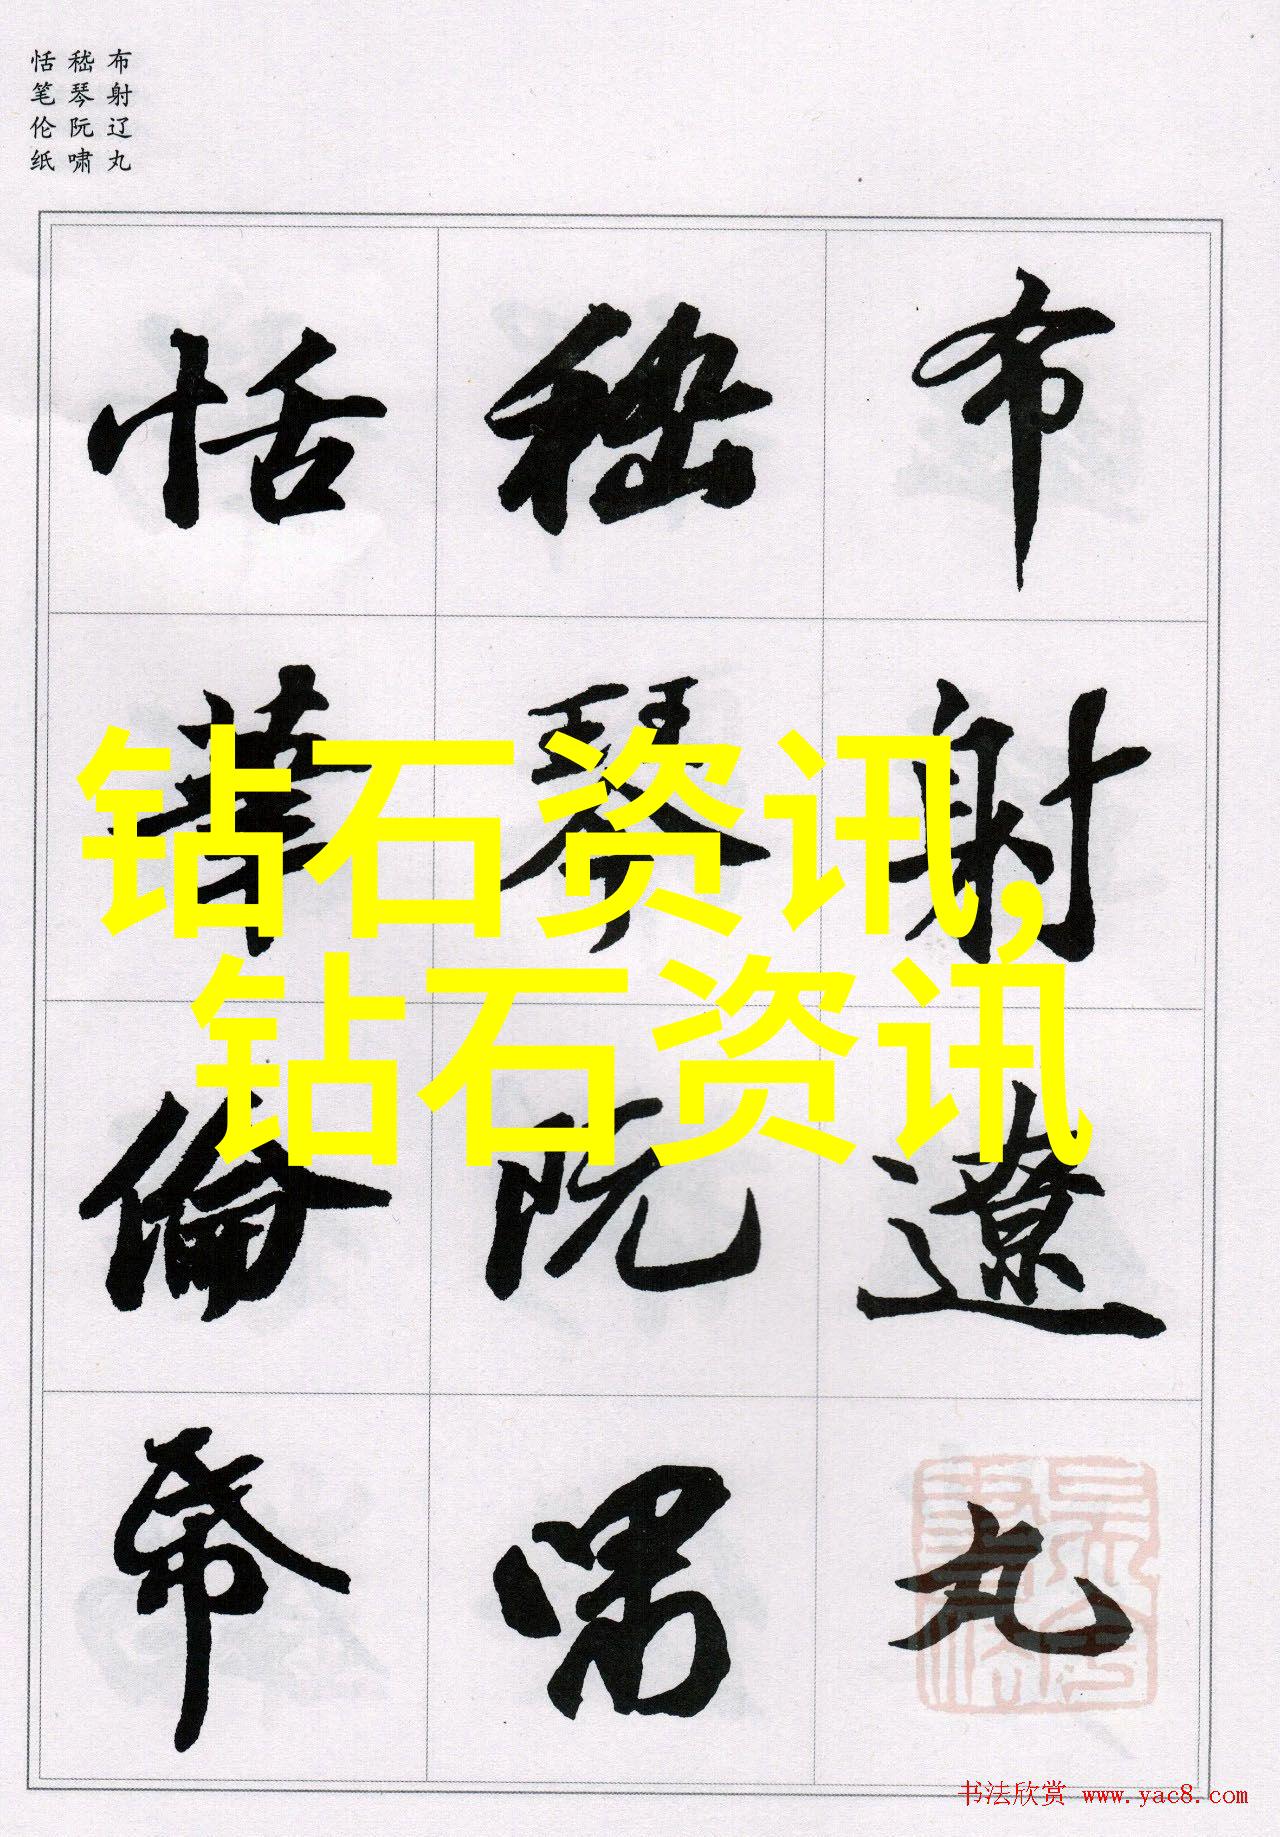 布射辽丸
嵇琴阮啸
恬笔伦纸
布射遼丸
嵇琴阮啸
恬筆倫帋
钻石资讯,
钻石资讯
书法欣赏 www.yac8.com